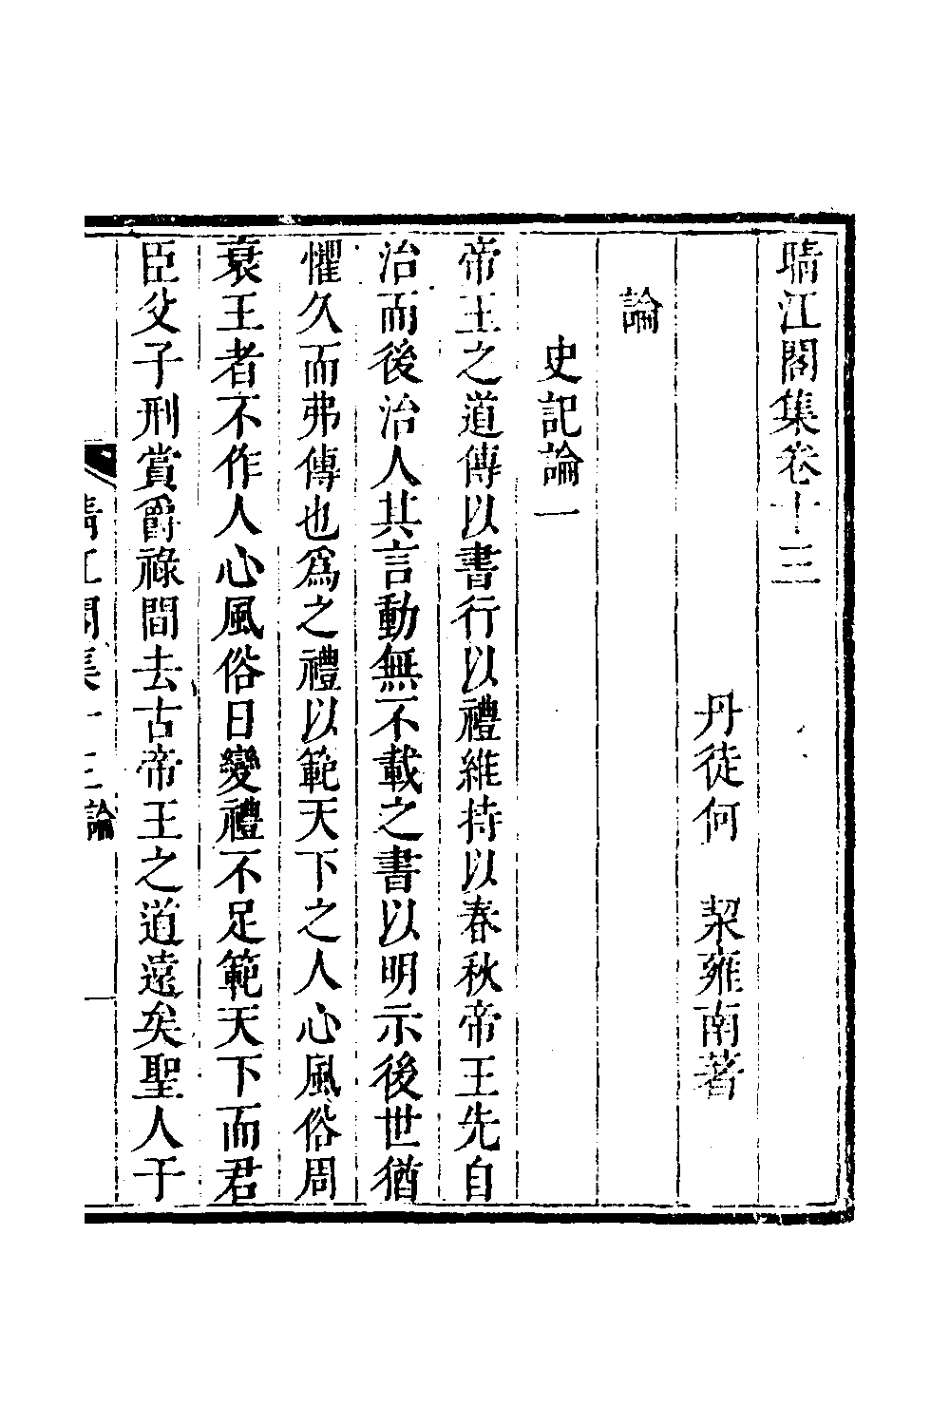 晴江閣集卷十三
丹徒何　契雍南著
論
史記論一
帝王之道傳以書行以禮維持以春秋帝王先自
治而後治人其言動無不載之書以明示後世猶
懼久而弗傳也爲之禮以範天下之人心風俗周
衰王者不作人心風俗日變禮不足範天下而君
臣父子刑賞爵祿間去古帝王之道遠矣聖人于
晴江閣集　十三論　一